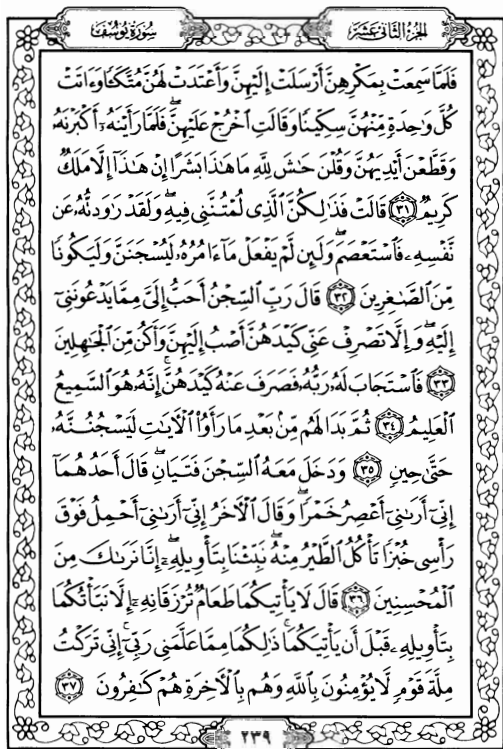 سُورَةُ يُوسُفَ
الجُزءُ الثَّانِي عَشَرَ
فَلَمَّا سَمِعَتْ بِمَكْرِهِنَّ أَرْسَلَتْ إِلَيْهِنَّ وَأَعْتَدَتْ لَهُنَّ مُتَّكَـًٔا وَءَاتَتْ
كُلَّ وَٰحِدَةٍ مِّنْهُنَّ سِكِّينًا وَقَالَتِ ٱخْرُجْ عَلَيْهِنَّۖ فَلَمَّا رَأَيْنَهُۥٓ أَكْبَرْنَهُۥ
وَقَطَّعْنَ أَيْدِيَهُنَّ وَقُلْنَ حَٰشَ لِلَّهِ مَا هَٰذَا بَشَرًا إِنْ هَٰذَآ إِلَّا مَلَكٌ
كَرِيمٌ ٣١ قَالَتْ فَذَٰلِكُنَّ ٱلَّذِى لُمْتُنَّنِى فِيهِۖ وَلَقَدْ رَٰوَدتُّهُۥ عَن
نَّفْسِهِۦ فَٱسْتَعْصَمَۖ وَلَئِن لَّمْ يَفْعَلْ مَآ ءَامُرُهُۥ لَيُسْجَنَنَّ وَلَيَكُونًا
مِّنَ ٱلصَّٰغِرِينَ ٣٢ قَالَ رَبِّ ٱلسِّجْنُ أَحَبُّ إِلَىَّ مِمَّا يَدْعُونَنِىٓ
إِلَيْهِۖ وَإِلَّا تَصْرِفْ عَنِّى كَيْدَهُنَّ أَصْبُ إِلَيْهِنَّ وَأَكُن مِّنَ ٱلْجَٰهِلِينَ
٣٣ فَٱسْتَجَابَ لَهُۥ رَبُّهُۥ فَصَرَفَ عَنْهُ كَيْدَهُنَّۚ إِنَّهُۥ هُوَ ٱلسَّمِيعُ
ٱلْعَلِيمُ ٣٤ ثُمَّ بَدَا لَهُم مِّنۢ بَعْدِ مَا رَأَوُا۟ ٱلْءَايَٰتِ لَيَسْجُنُنَّهُۥ
حَتَّىٰ حِينٍ ٣٥ وَدَخَلَ مَعَهُ ٱلسِّجْنَ فَتَيَانِۖ قَالَ أَحَدُهُمَآ
إِنِّىٓ أَرَىٰنِىٓ أَعْصِرُ خَمْرًاۖ وَقَالَ ٱلْءَاخَرُ إِنِّىٓ أَرَىٰنِىٓ أَحْمِلُ فَوْقَ
رَأْسِى خُبْزًا تَأْكُلُ ٱلطَّيْرُ مِنْهُۖ نَبِّئْنَا بِتَأْوِيلِهِۦٓۖ إِنَّا نَرَىٰكَ مِنَ
ٱلْمُحْسِنِينَ ٣٦ قَالَ لَا يَأْتِيكُمَا طَعَامٌ تُرْزَقَانِهِۦٓ إِلَّا نَبَّأْتُكُمَا
بِتَأْوِيلِهِۦ قَبْلَ أَن يَأْتِيَكُمَاۚ ذَٰلِكُمَا مِمَّا عَلَّمَنِى رَبِّىٓۚ إِنِّى تَرَكْتُ
مِلَّةَ قَوْمٍ لَّا يُؤْمِنُونَ بِٱللَّهِ وَهُم بِٱلْءَاخِرَةِ هُمْ كَٰفِرُونَ ٣٧
٢٣٩